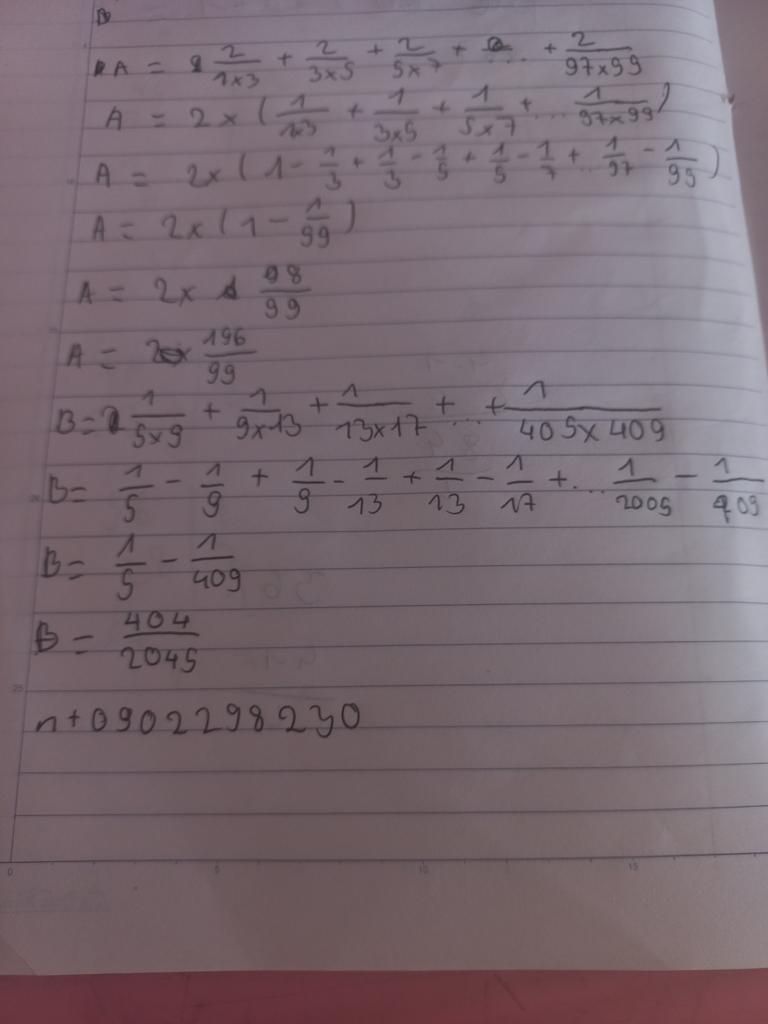 B
A = 2/1×3 + 2/3×5 + 2/5×7 + ... + 2/97×99
A = 2×(1/1×3 + 1/3×5 + 1/5×7 + ... 1/97×99)
A = 2×(1 - 1/3 + 1/3 - 1/5 + 1/5 - 1/7 + ... 1/97 - 1/99)
A = 2×(1 - 1/99)
A = 2× 98/99
A = 196/99
B = 1/5×9 + 1/9×13 + 1/13×17 + ... + 1/405×409
B = 1/5 - 1/9 + 1/9 - 1/13 + 1/13 - 1/17 + ... 1/2005 - 1/409
B = 1/5 - 1/409
B = 404/2045